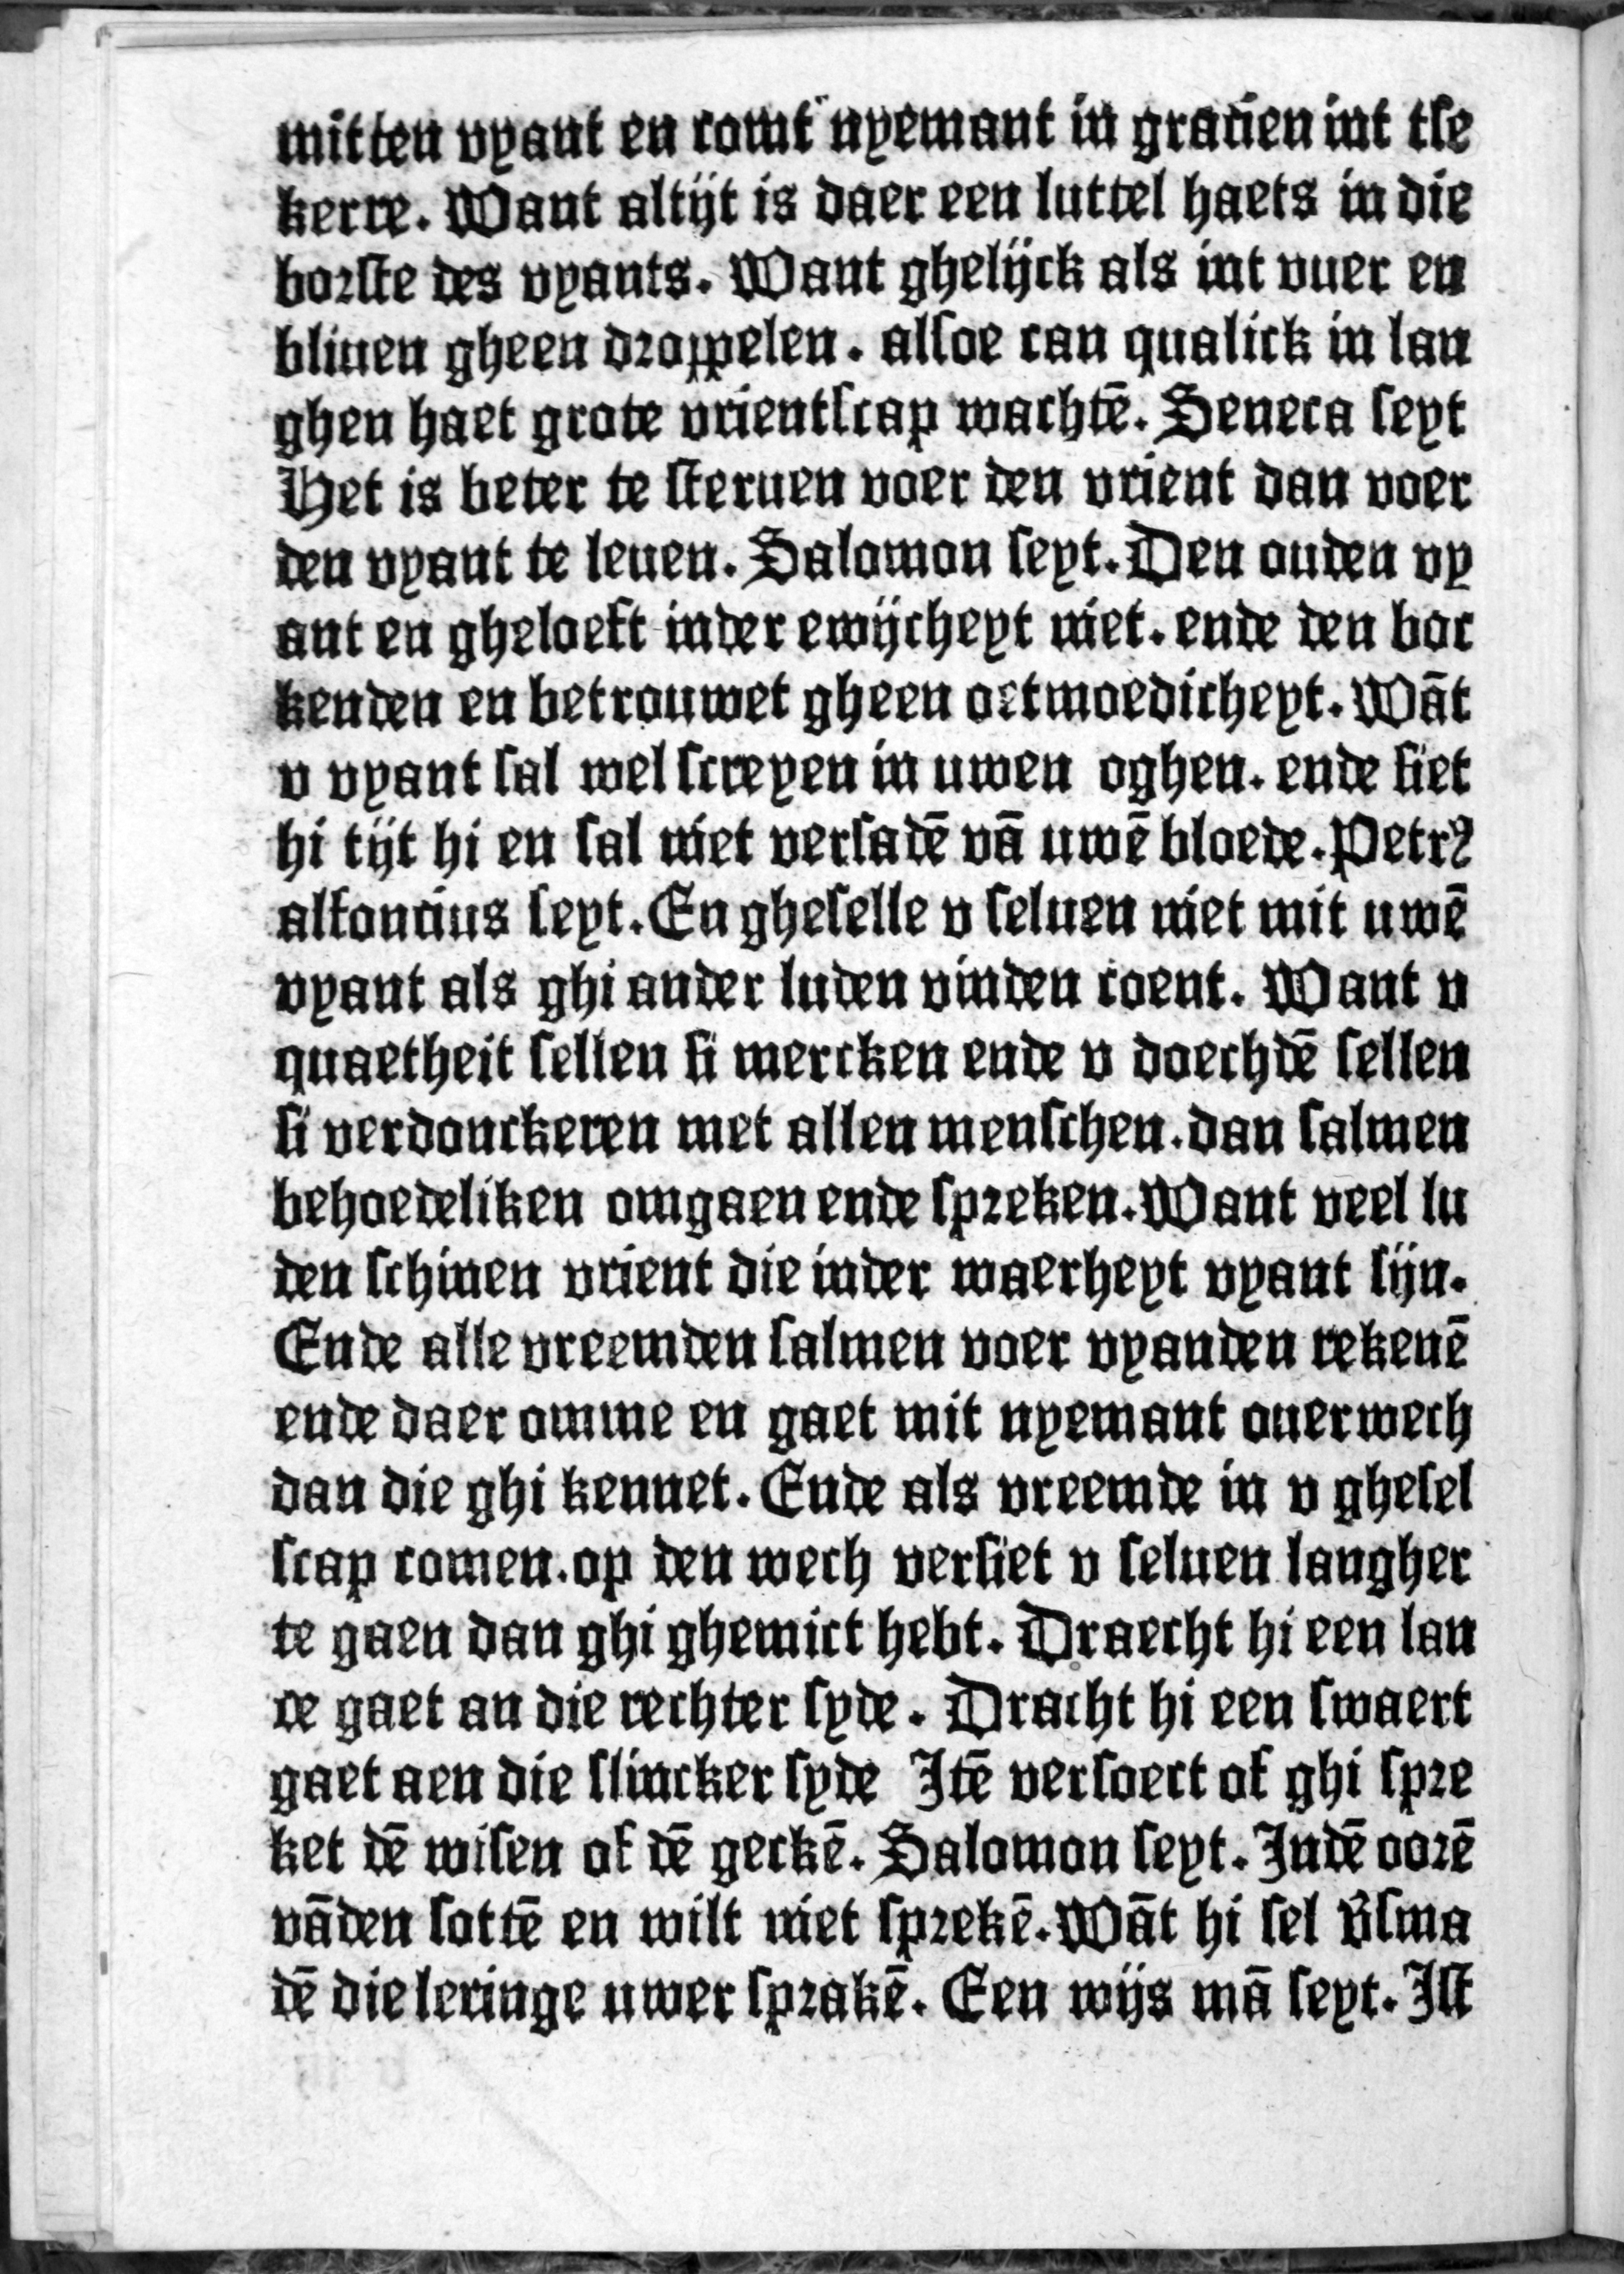 mitten vyant en comt nyemant in gracien int tſe
kerre. Want altijt is daer een luttel haets in die
borſte des vyants. Want ghelijck als int vuer en
bliuen gheen droppelen. alſoe can qualick in lan
ghen haet grote vrientſcap wachtē. Seneca ſeyt
Het is beter te ſteruen voer den vrient dan voer
den vyant te leuen. Salomon ſeyt. Den ouden vy
ant en gheloeft inder ewijcheyt niet. ende den boc
kenden en betrouwet gheen oetmoedicheyt. Wāt
v vyant ſal wel ſcreyen in uwen oghen. ende ſiet
hi tijt hi en ſal niet verſadē vā uwē bloede. Petrꝰ
alfoncius ſeyt. En gheſelle v ſeluen niet mit uwē
vyant als ghi ander luden vinden coent. Want v
quaetheit ſellen ſi mercken ende v doechdē ſellen
ſi verdonckeren met allen menſchen. dan ſalmen
behoedeliken omgaen ende ſpreken. Want veel lu
den ſchinen vrient die inder waerheyt vyant ſijn.
Ende alle vreemden ſalmen voer vyanden rekenē
ende daer omme en gaet mit nyemant ouer wech
dan die ghi kennet. Ende als vreemde in v gheſel
ſcap comen. op den wech verſiet v ſeluen langher
te gaen dan ghi ghemict hebt. Draecht hi een lan
ce gaet an die rechter ſyde. Dracht hi een ſwaert
gaet aen die ſlincker ſyde Itē verſoect of ghi ſpre
ket dē wiſen of dē geckē. Salomon ſeyt. Indē oorē
vāden ſottē en wilt niet ſprekē. Wāt hi ſel v̄ſma
dē die leringe uwer ſprakē. Een wijs mā ſeyt. Iſt